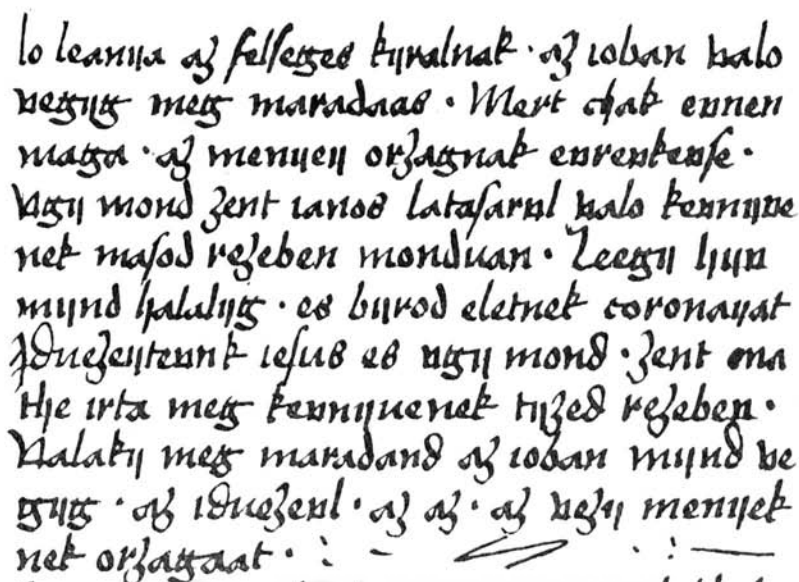 lo leanÿa az felseges kÿralnak · az ioban valo
vegÿg meg maradaas · Mert chak ewnen
maga · az menÿeÿ orzagnak ewrewkewse ·
Vgÿ mond zent ianos latasarwl valo kewnÿwe
nek masod rezeben monduan · Leegÿ hÿw
mÿnd halalÿg · es bÿrod eletnek coronaÿat
Iduezeÿtewnk iesus es vgÿ mond · zent ma
the irta meg kewnÿuenek tÿzed rezeben ·
Valakÿ meg maradand az ioban mÿnd ve
gÿg · az iduezewl · az az · az vezÿ menÿek
nek orzagaat ·